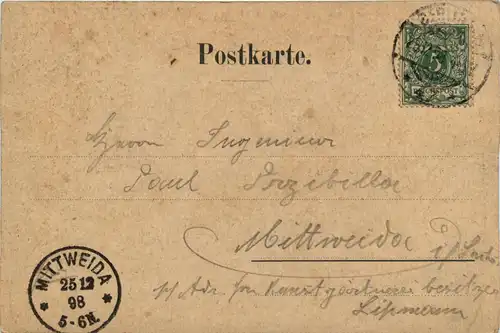 Postkarte.
5
Herrn Ingenieur
Paul Przibilla
Mittweida i/Sachs
p/Adr. Frn Kunstgärtnereibesitzer
MITTWEIDA
25 12
98
5-6N.